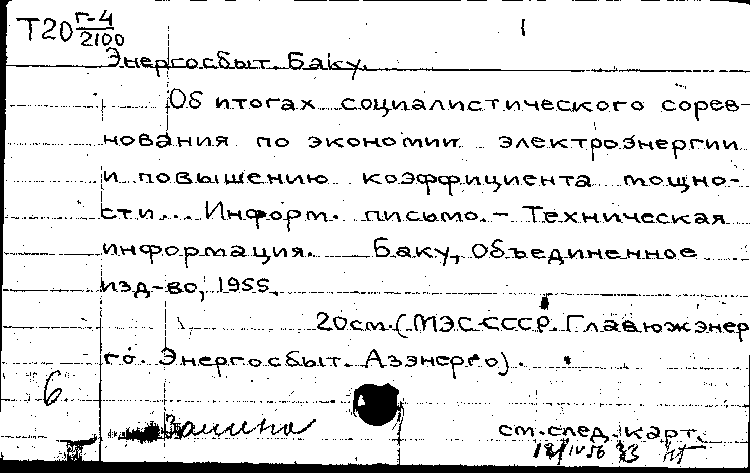 Т20 Г-4/2100 1
Энергосбыт. Баку.
Об итогах социалистического сорев-
нования по экономии электроэнергии
и повышению коэффициента мощно-
сти... Информ. письмо. - Техническая
информация. Баку, Объединенное
изд-во, 1955.
20см. (МЭС СССР. Главюжэнер
го. Энергосбыт. Азэнерго).
6.
Замена
см. след. карт.